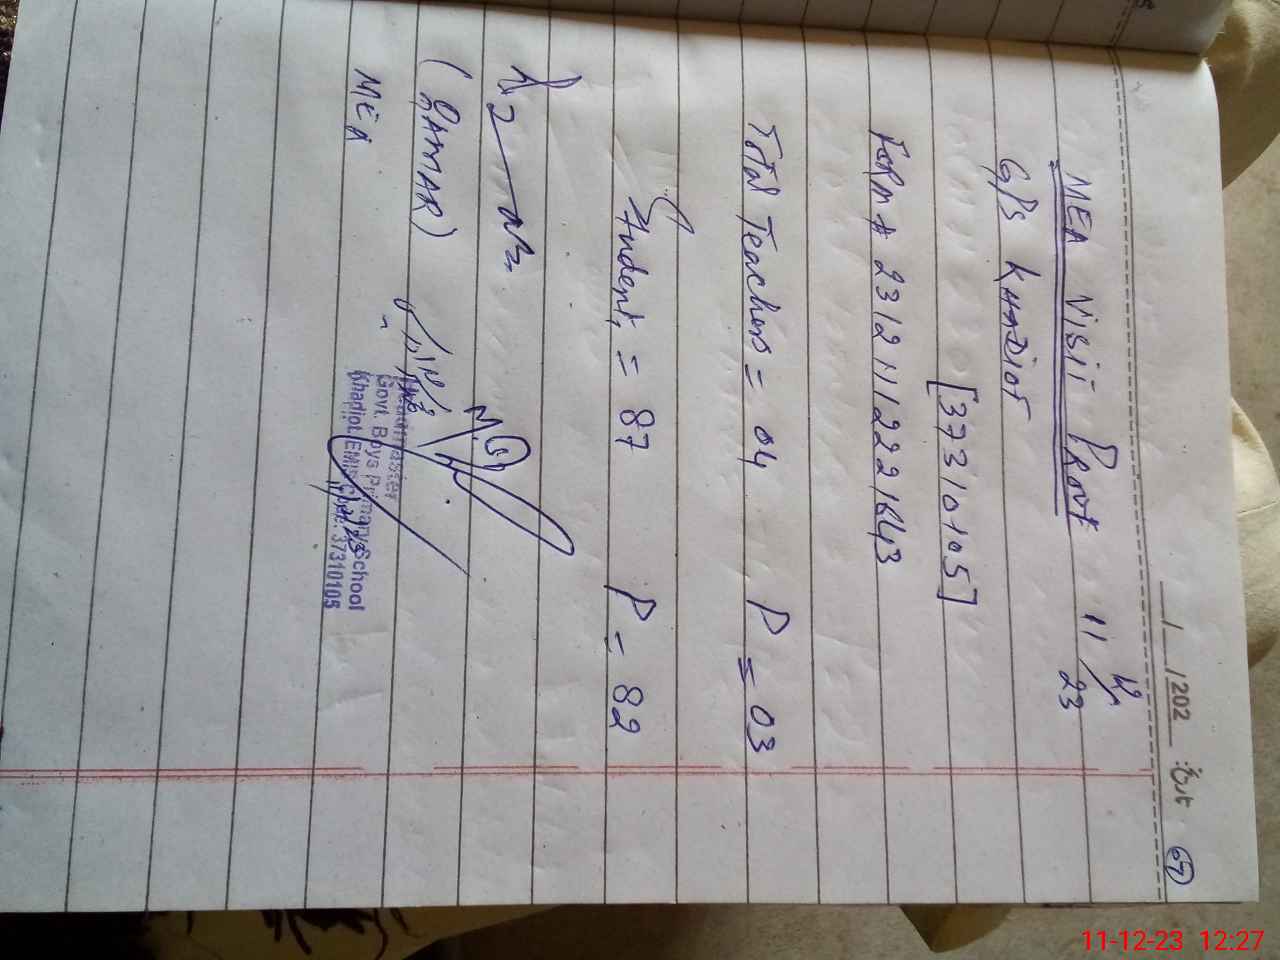 / /202 تاریخ: 67
MEA Visit Prove 11/12/23
G/Ps KHADIOT
[37310105]
Form # 23121112221643
Total Teachers = 04 P = 03
Student = 87 P = 82
(QAMAR)
MEA
Headmaster
Govt. Boys Primary School
Khadiot, EMIS Code: 37310105
11-12-23 12:27